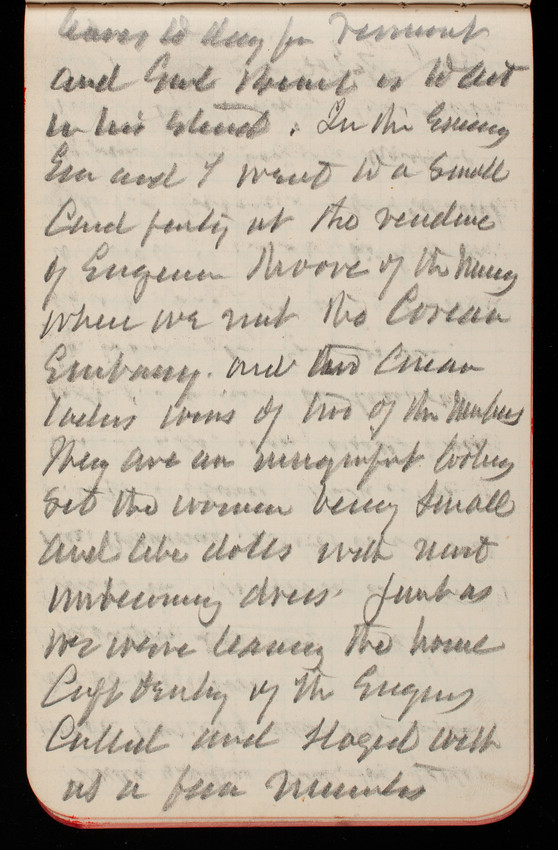 leaves to day for Vermont
and Genl is to act
in his stead. In the Evening
Em and I went to a small
Card party at the residence
of Eugenia Moore of the Navy
where we met the Corean
Embassy. and two Corean
ladies wives of two of the members
They are an insignificant looking
set the women being small
and like dolls with most
unbecoming dress. Just as
we were leaving the house
Capt Derby of the Engrs
Called and staged with
us a few minutes